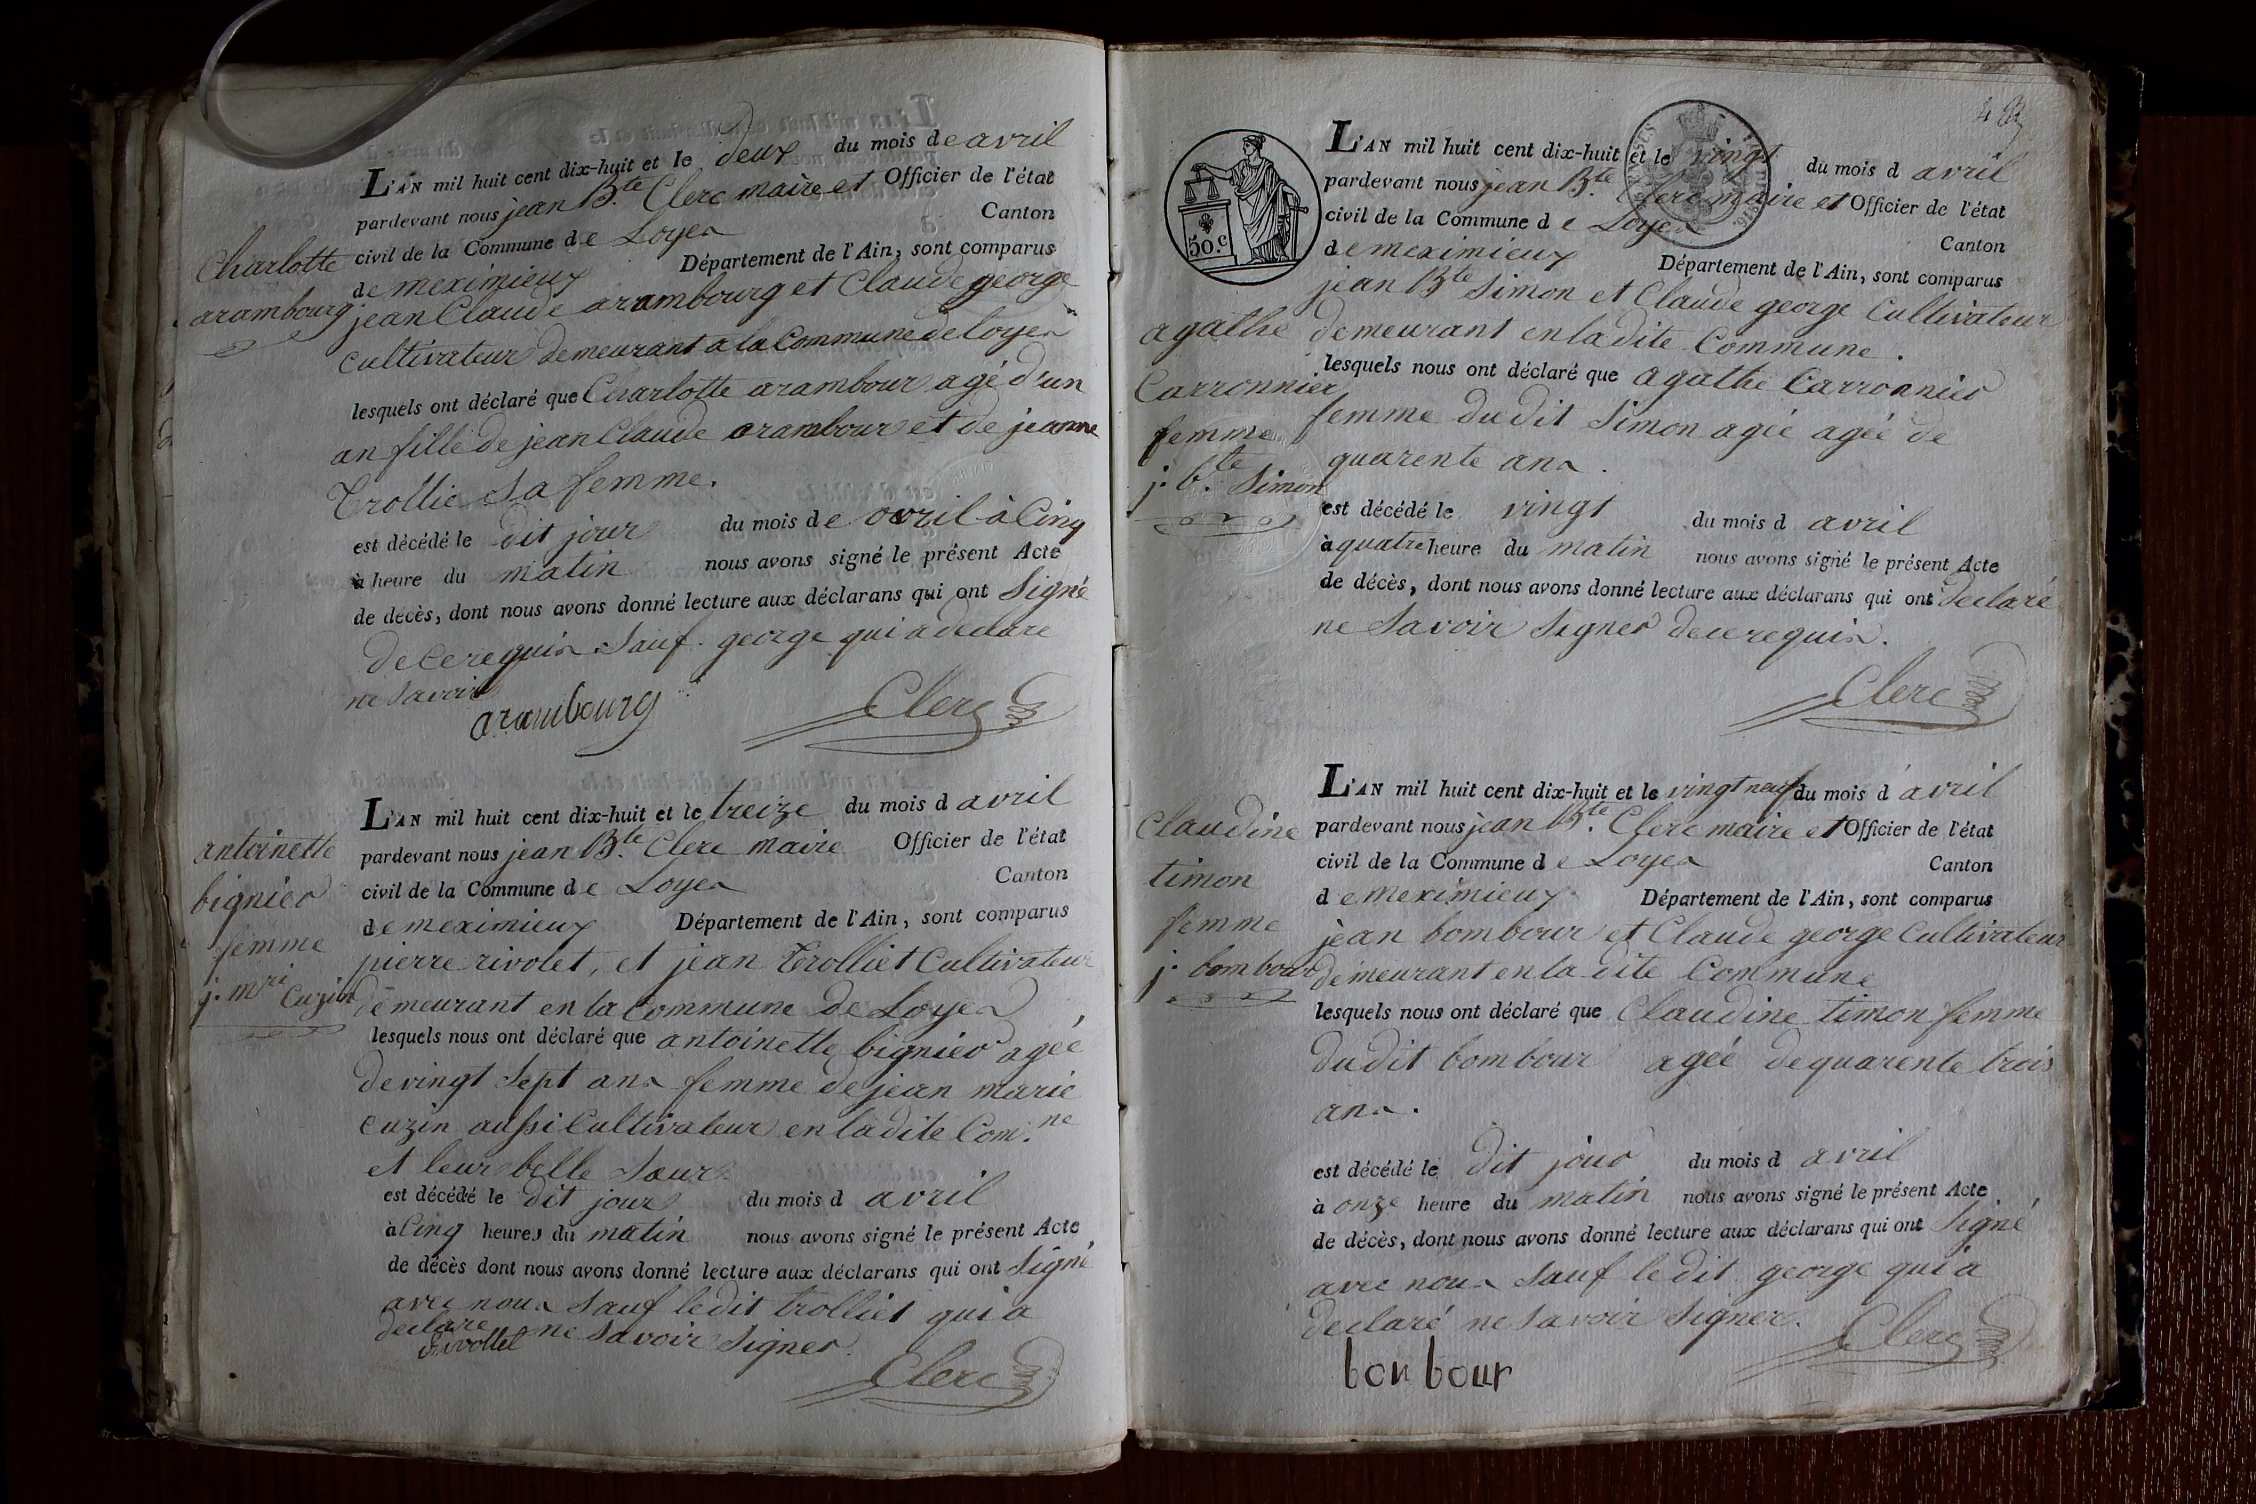 L'AN mil huit cent dix-huit et le deux du mois de avril
pardevant nous jean B.te Clerc maire et Officier de l'état
civil de la Commune de Loyes Canton
de meximieux Département de l'Ain, sont comparus
jean Claude arambourg et Claude george
Cultivateur demeurant a la Commune de loyes
lesquels ont déclaré que Charlotte arambour agé d'un
an fille de jean Claude arambour et de jeanne
Trollie sa femme.
est décédé le dit jour du mois de avril à Cinq
à heure du matin nous avons signé le présent Acte
de décès, dont nous avons donné lecture aux déclarans qui ont Signé
de ce requis sauf george qui a declare
ne savoir
arambourg Clerc
Charlotte
arambourg
L'AN mil huit cent dix-huit et le treize du mois d avril
pardevant nous jean B.te Clerc maire Officier de l'état
civil de la Commune de Loyes Canton
de meximieux Département de l'Ain, sont comparus
pierre rivolet, et jean Trolliet Cultivateur
demeurant en la Commune de Loyes
lesquels nous ont déclaré que antoinette bignier agée
de vingt sept ans femme de jean marie
cuzin aussi Cultivateur en la dite Com.ne
et leur belle Sœur
est décédé le dit jour du mois d avril
à Cinq heures du matin nous avons signé le présent Acte
de décès dont nous avons donné lecture aux déclarans qui ont Signé
avec nous sauf ledit trolliet qui a
declare ne savoir signer.
Rivollet
Clerc
antoinette
bignier
femme
j. m.ri Cuzin
50.c
L'AN mil huit cent dix-huit et le vingt du mois d avril
pardevant nous jean B.te Clerc maire et Officier de l'état
civil de la Commune de Loyes Canton
de meximieux Département de l'Ain, sont comparus
jean B.te Simon et Claude george Cultivateur
demeurant en la dite Commune.
lesquels nous ont déclaré que agathe Carronnier
femme du dit Simon agée agée de
quarente ans.
est décédé le vingt du mois d avril
à quatre heure du matin nous avons signé le présent Acte
de décès, dont nous avons donné lecture aux déclarans qui ont declaré
ne Savoir Signer de ce requis.
Clerc
agathe
Carronnier
femme
j. b.te Simon
L'AN mil huit cent dix-huit et le vingt neuf du mois d avril
pardevant nous jean B.te Clerc maire et Officier de l'état
civil de la Commune de Loyes Canton
de meximieux Département de l'Ain, sont comparus
jean bombour et Claude george Cultivateur
demeurant en la dite Commune
lesquels nous ont déclaré que Claudine timon femme
du dit bombour agée de quarente trois
ans.
est décédé le dit jour du mois d avril
à onze heure du matin nous avons signé le présent Acte
de décès, dont nous avons donné lecture aux déclarans qui ont Signé
avec nous Sauf ledit george qui a
declaré ne savoir signer.
bonbour Clerc
Claudine
timon
femme
j. bombour